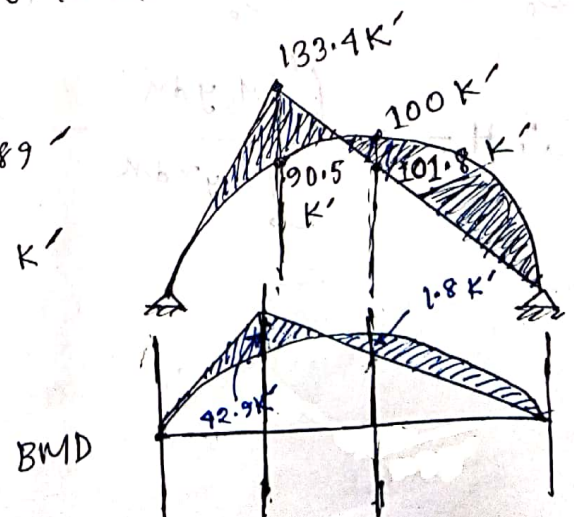 133.4K′
100 K′
89′
90.5
K′
101.8 K′
K′
1.8 K′
42.9K′
BMD